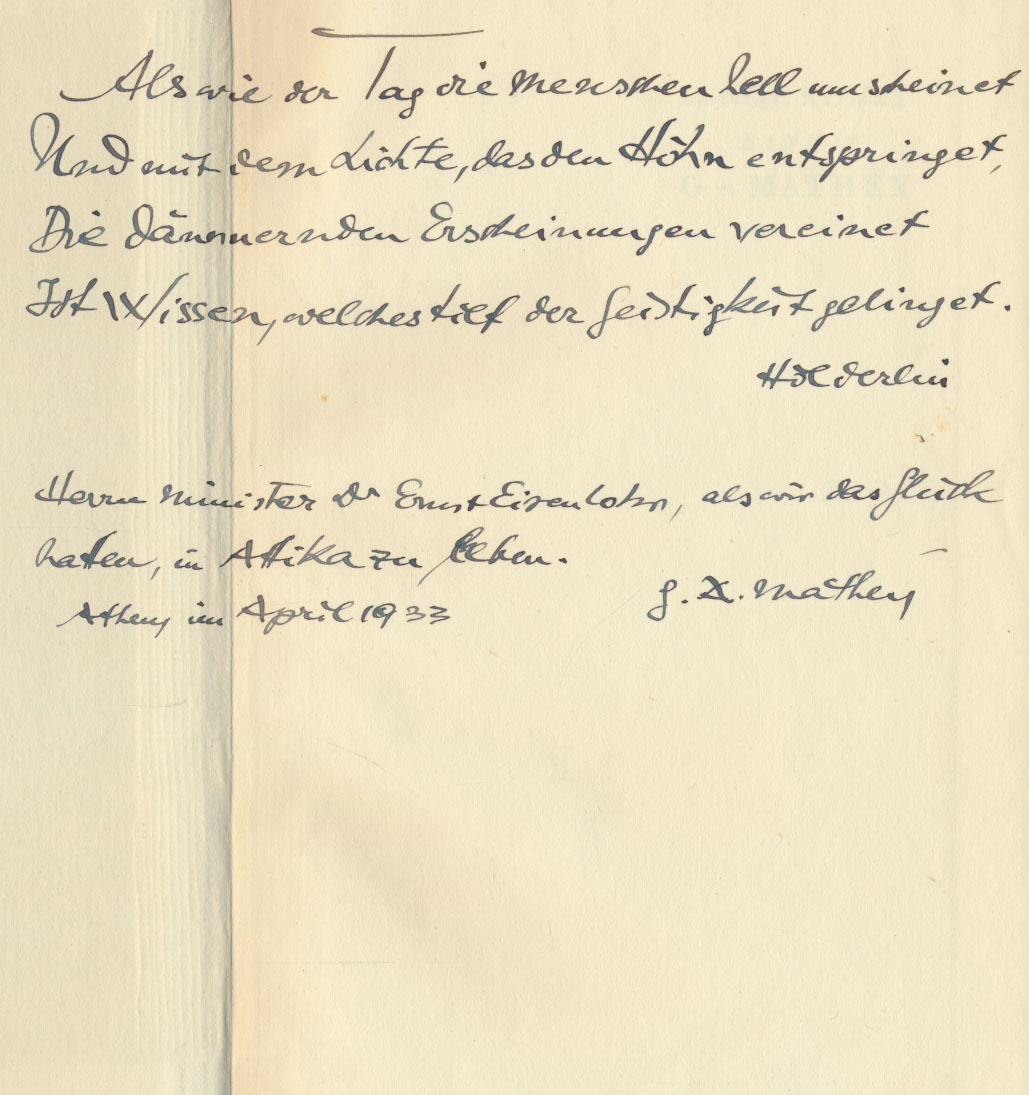 Als wie der Tag die Menschen hell umscheinet
Und mit dem Lichte, das den Höhn entspringet,
Die dämmernden Erscheinungen vereinet
Ist Wissen, welches tief der Geistigkeit gelinget.
Hölderlin
Herrn Minister Dr Ernst Eisenlohr, als wir das Glück
hatten, in Attika zu leben.
G. A. Mathéy
Athen, im April 1933